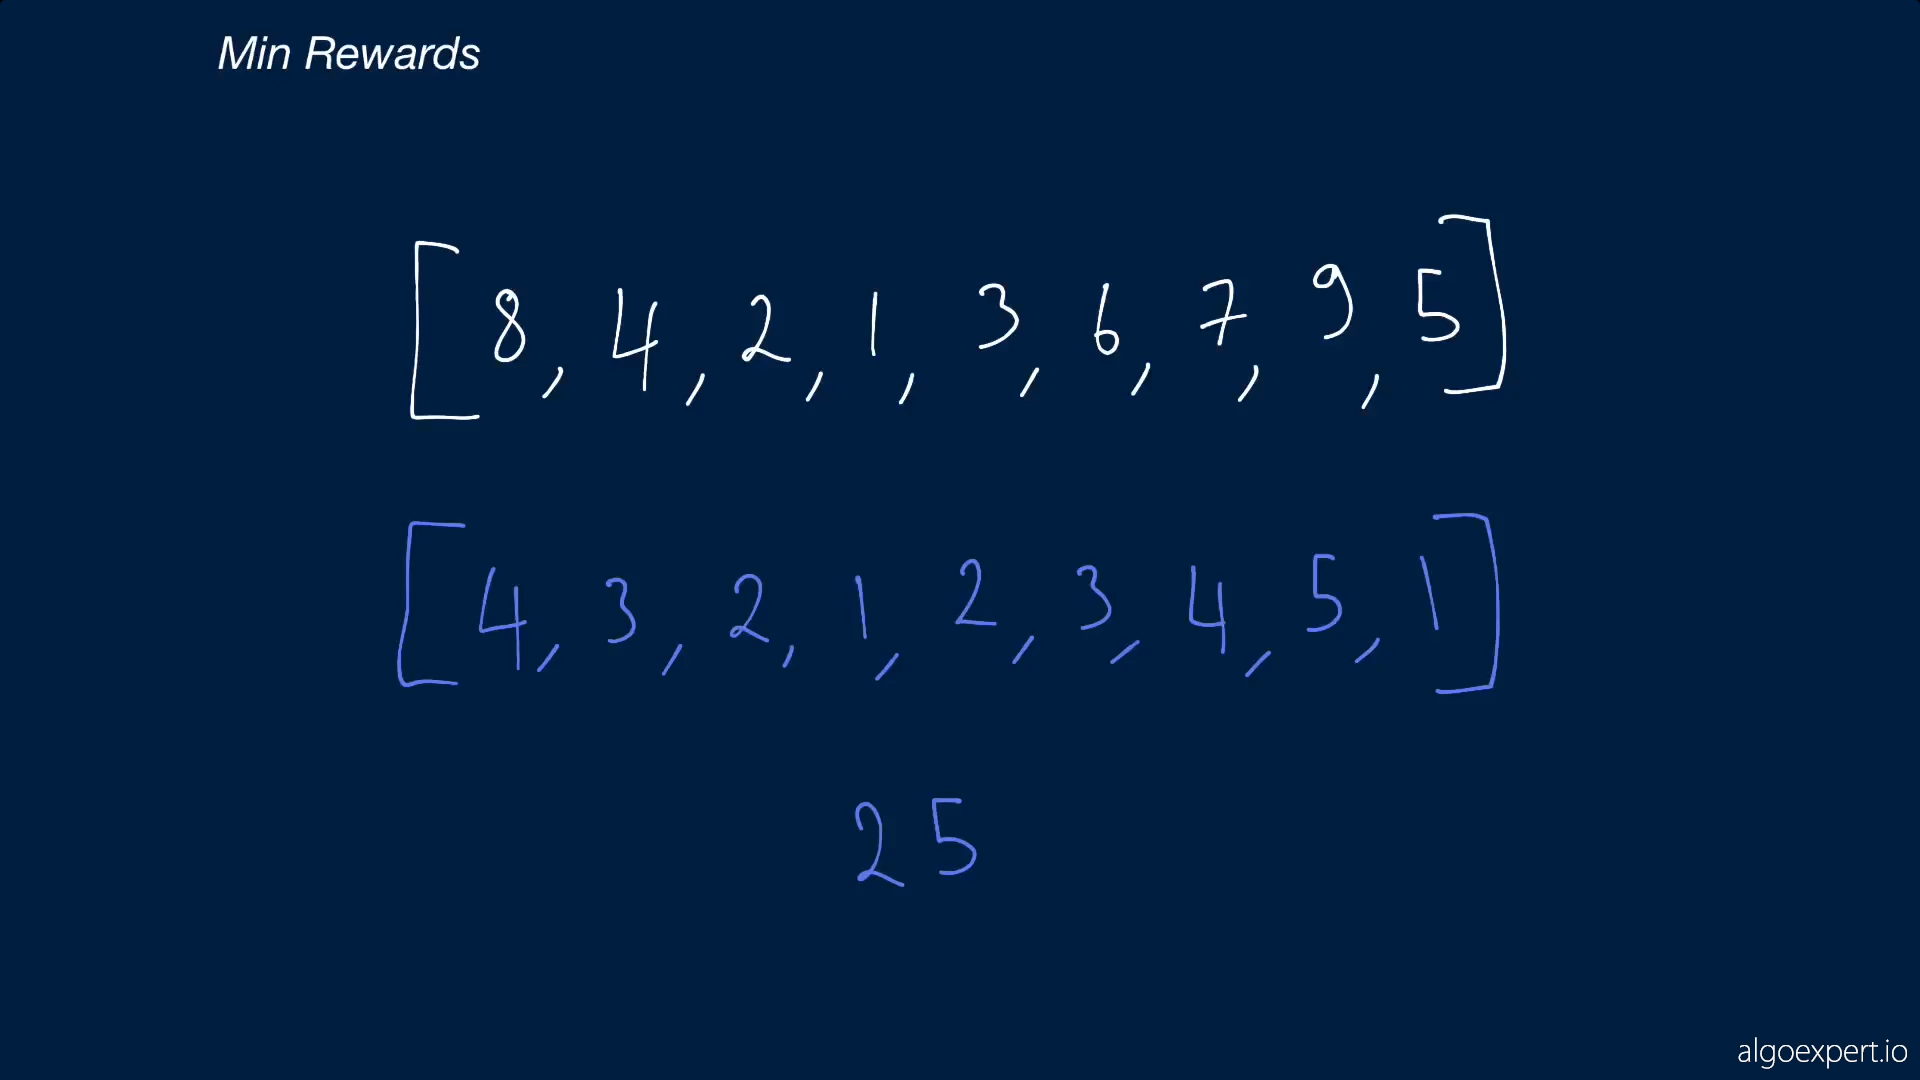 Min Rewards
[8, 4, 2, 1, 3, 6, 7, 9, 5]
[4, 3, 2, 1, 2, 3, 4, 5, 1]
25
algoexpert.io